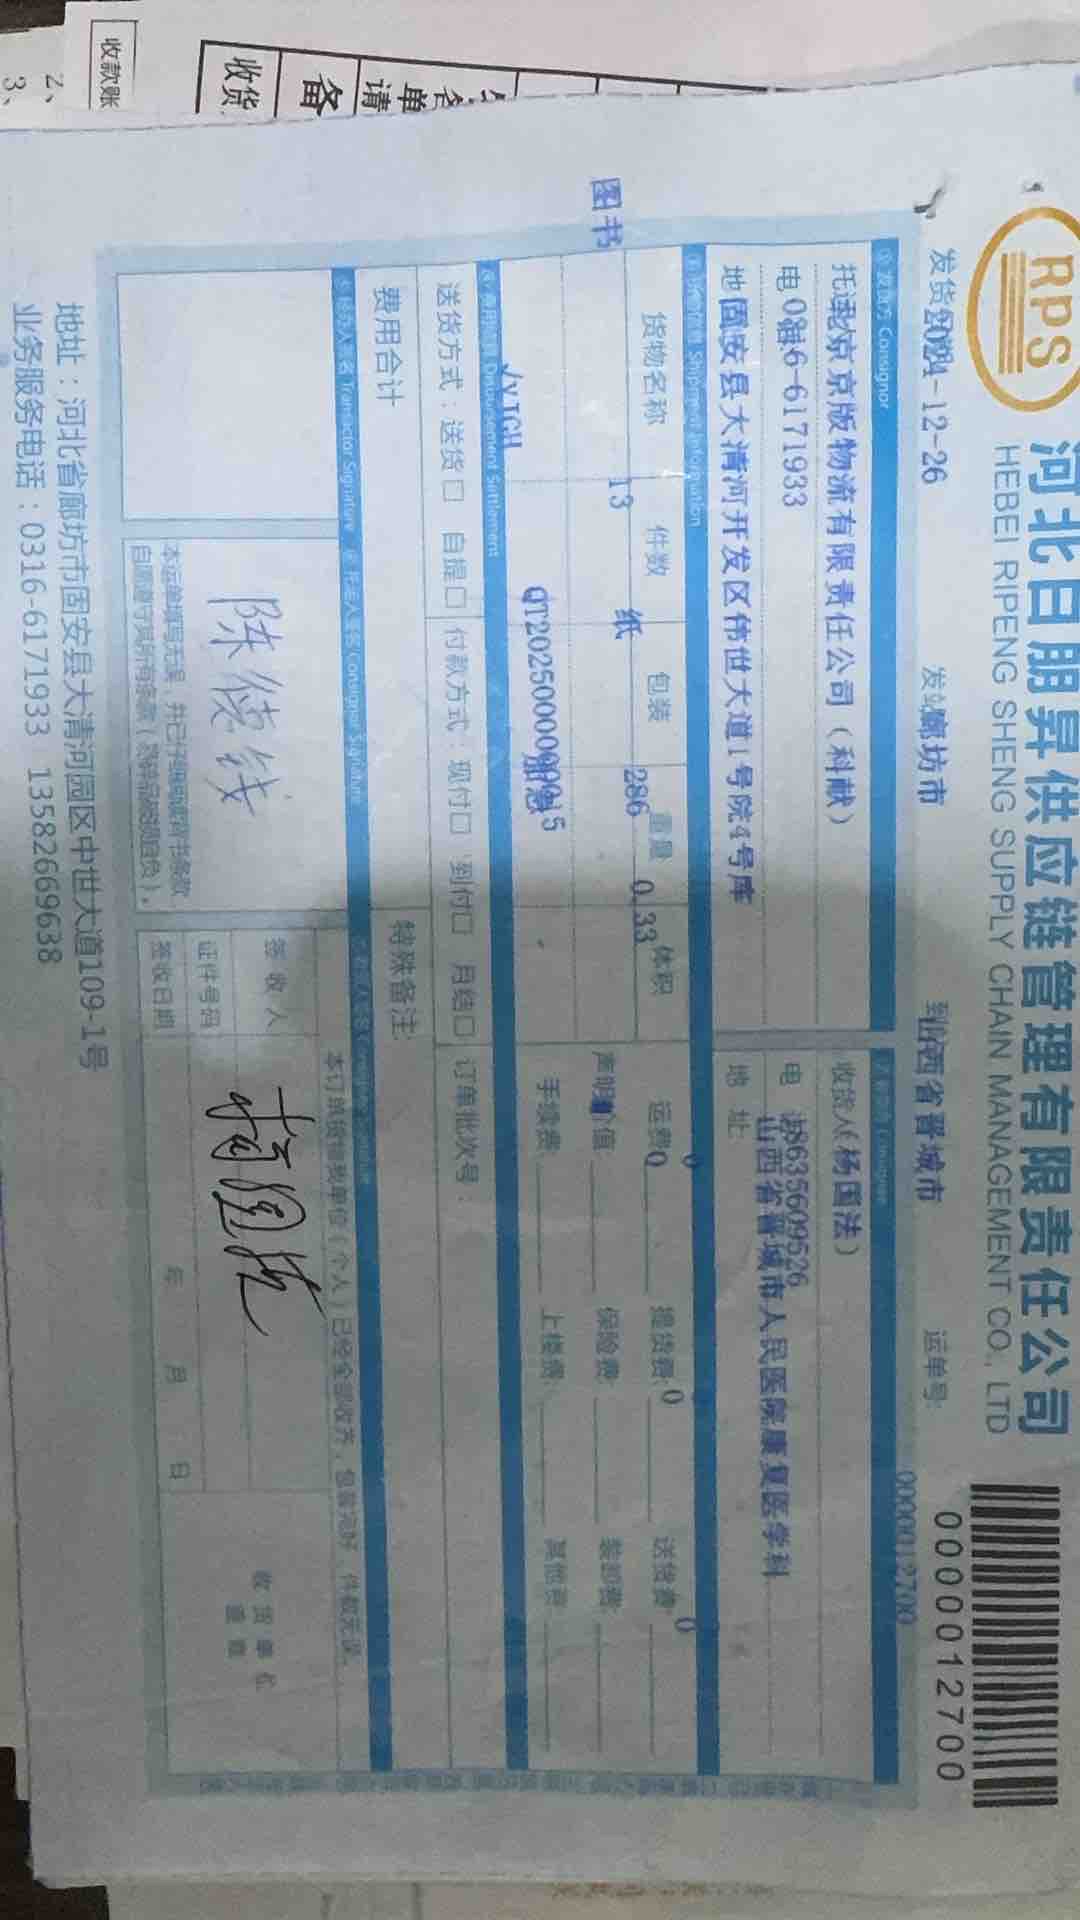 收款账
2、
3、
收货
备
单
请
RPS
河北日朋昇供应链管理有限责任公司
HEBEI RIPENG SHENG SUPPLY CHAIN MANAGEMENT CO., LTD
0000012700
发货 2024-12-26 发站 廊坊市 到 山西省晋城市 运单号: 0000012700
发货方 Consignor
托运 北京京版物流有限责任公司（科献）
电 0316-6171933
地 固安县大清河开发区伟世大道1号院4号库
收货人（杨国法）
电 话 18635609526
地 址: 山西省晋城市人民医院康复医学科
货物信息 Shipment Information
货物名称 件数 包装 重量 体积
图书 13 纸 286 0.33
运费 0 提货费: 0 送货费: 0
声明价值 保险费: 装卸费:
手续费: 上楼费: 其他费:
费用结算 Disbursement Settlement
√YTGH
加急
送货方式：送货□ 自提□ 付款方式：现付□ 到付□ 月结□ 订单批次号：
费用合计 特殊备注:
经办人签名 Transactor Signature 托运人签名 Consignor Signature
本订单货物我单位（个人）已经全部收齐，包装完好，件数无误。
签收人
证件号码
签收日期 年 月 日
收货单位
盖章
本运单填写无误，并已仔细阅读背书条款，
自愿遵守其所有条款（易碎品破损自负）。
地址：河北省廊坊市固安县大清河园区中世大道109-1号
业务服务电话：0316-6171933 13582669638